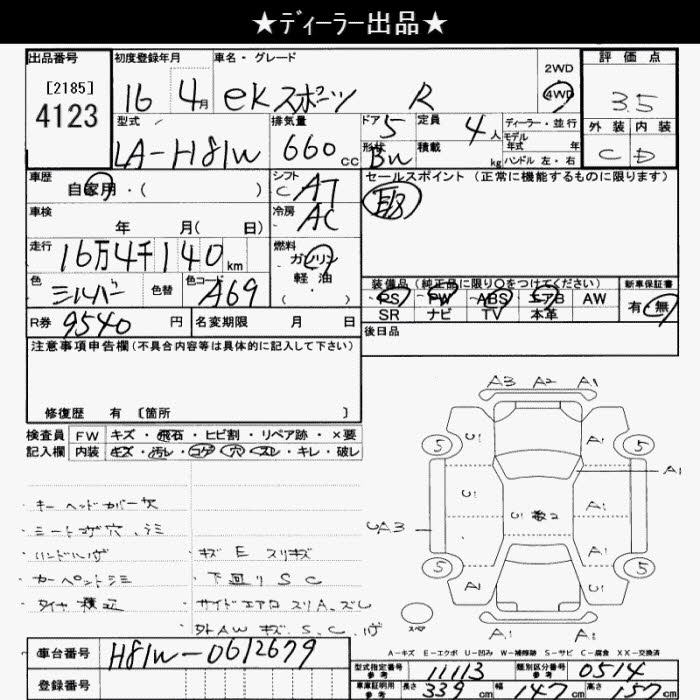 ★ディーラー出品★
出品番号 初度登録年月 車名・グレード 評価点
[2185] 4123
16 4月 eKスポーツ R 2WD 4WD 3.5
型式 排気量 ドア 5 定員 4人 ディーラー・並行 外装 内装
LA-H81W 660cc 形状 Bn 積載 kg モデル年式 年 ハンドル 左・右 C D
車歴 自家用・( ) シフト C AT セールスポイント (正常に機能するものに限ります)
車検 年 月( 日) 冷房 AC
走行 16万4千140km 燃料 ガソリン 軽油 ( ・ )
色 シルバー 色替 色コード A69 装備品 (純正品に限り○をつけてください) 新車保証書
PS PW ABS エアB AW 有・無
SR ナビ TV 本革
R券 9540円 名変期限 月 日 後日品
注意事項申告欄(不具合内容等は具体的に記入して下さい)
修復歴 有 〔箇所 〕
検査員 FW キズ・飛石・ヒビ割・リペア跡・×要
記入欄 内装 キズ・汚レ・コゲ・穴・スレ・キレ・破レ
A3 A2 A1
5 U1 A1 5
A1
U1 U1 数2 A1
UA3
U1 A1
5 A1 U1 5
A1 A1
・キーヘッドカバー欠
・シートコゲ穴、シミ
・ハンドルハゲ ・キズ E スリキズ
・カーペットシミ ・下廻り S C
・タイヤ積込 ・サイドエアロ スリA、ズレ
・外AWキズ、S、C、ハゲ
スペア
A-キズ E-エクボ U-凹み W-補修跡 S-サビ C-腐食 XX-交換済
車台番号 H81W-0612679
登録番号
型式指定番号 参考 11113 類別区分番号 参考 0514
車庫証明用 参考 長さ 339cm 幅 147cm 高さ 157cm